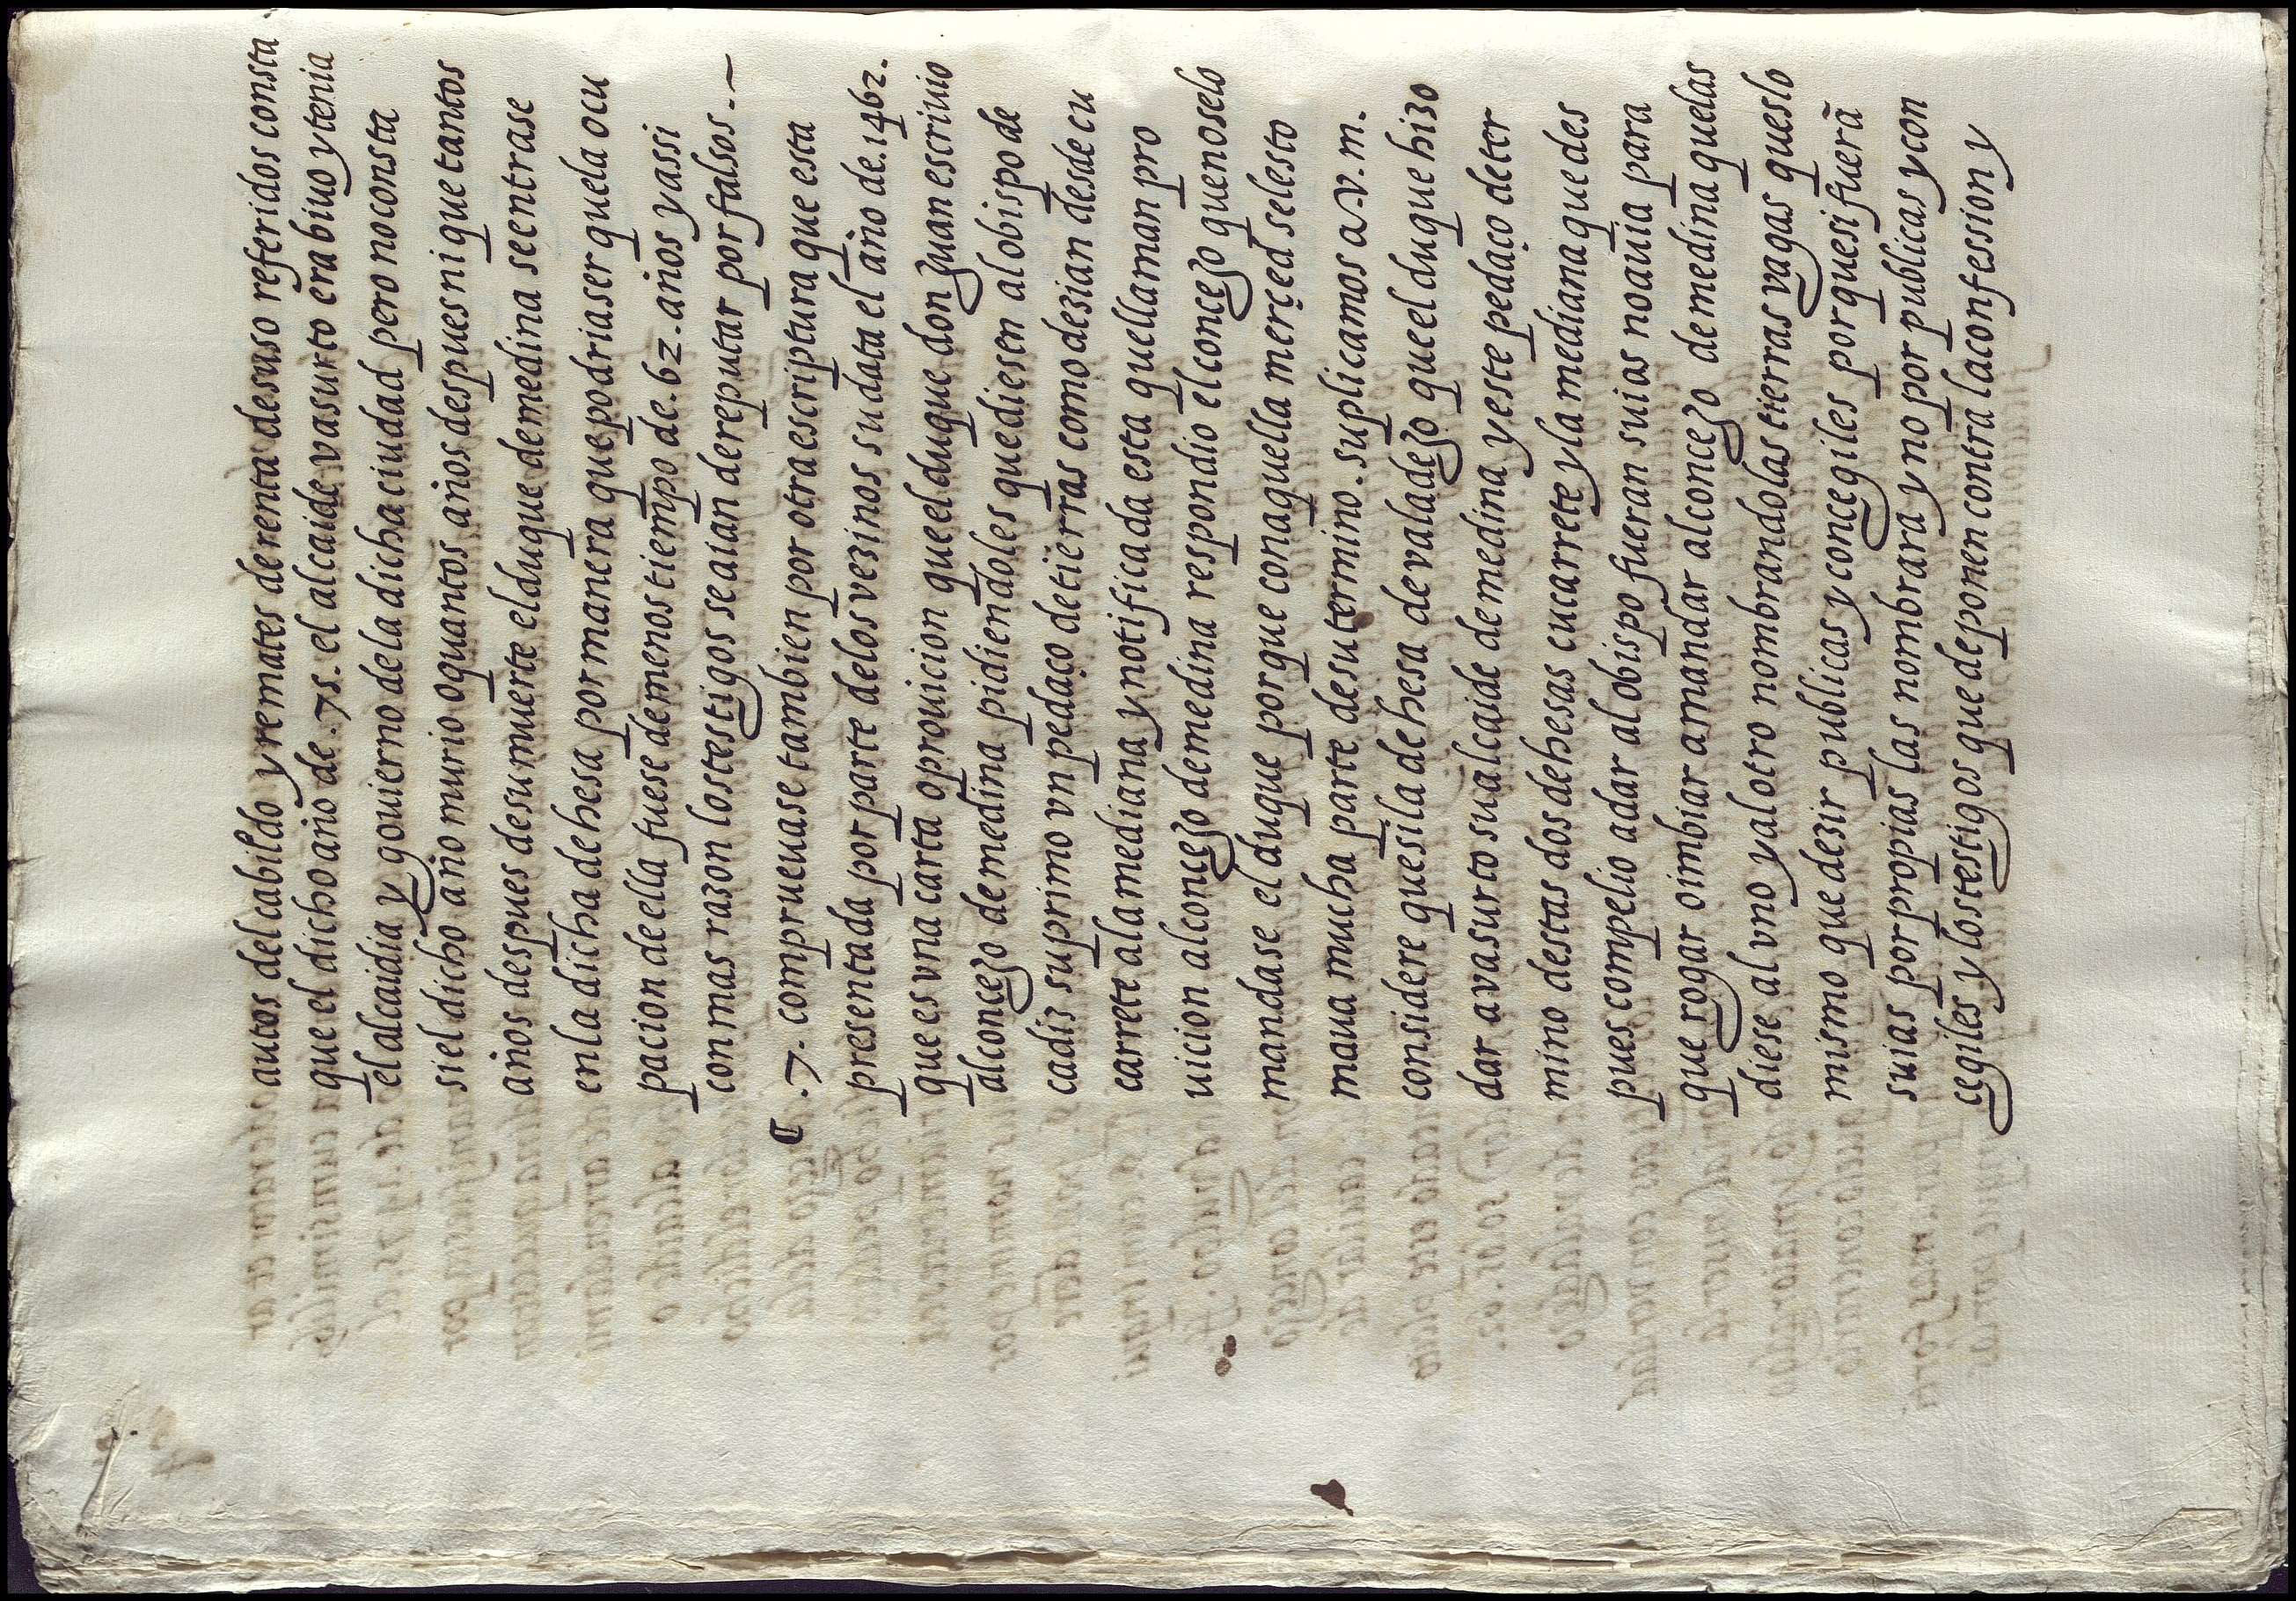 autos del cabildo y remates de renta de suso referidos consta
que el dicho año de .75. el alcaide vasurto era biuo y tenia
el alcaidia y gouierno de la dicha ciudad pero no consta
si el dicho año murio o quantos años despues ni que tantos
años despues de su muerte el duque de medina se entrase
en la dicha dehesa por manera que podria ser que la ocu
pacion de ella fuese de menos tiempo de .62. años y assi
con mas razon los testigos se aian de reputar por falsos. ~
.7. comprueuase tambien por otra escriptura que esta
presentada por parte de los vezinos su data el año de .1462.
que es vna carta o prouicion que el duque don juan escriuio
al concejo de medina pidiendoles que diesen al obispo de
cadiz su primo vn pedaço de tierras como dezian desde cu
carrete a la mediana y notificada esta que llaman pro
uicion al concejo de medina respondio el concejo que no se lo
mandase el duque porque con aquella merçed se les to
maua mucha parte de su termino. suplicamos a v. m.
considere que si la dehesa de valadejo que el duque hizo
dar a vasurto su alcaide de medina y este pedaço de ter
mino destas dos dehesas cucarrete y la mediana que des
pues compelio a dar al obispo fueran suias no auia para
que rogar o imbiar a mandar al concejo de medina que las
diese al vno y al otro nombrandolas tierras vagas que es lo
mismo que dezir publicas y concegiles porque si fuerã
suias por propias las nombrara y no por publicas y con
cegiles y los testigos que deponen contra la confession y